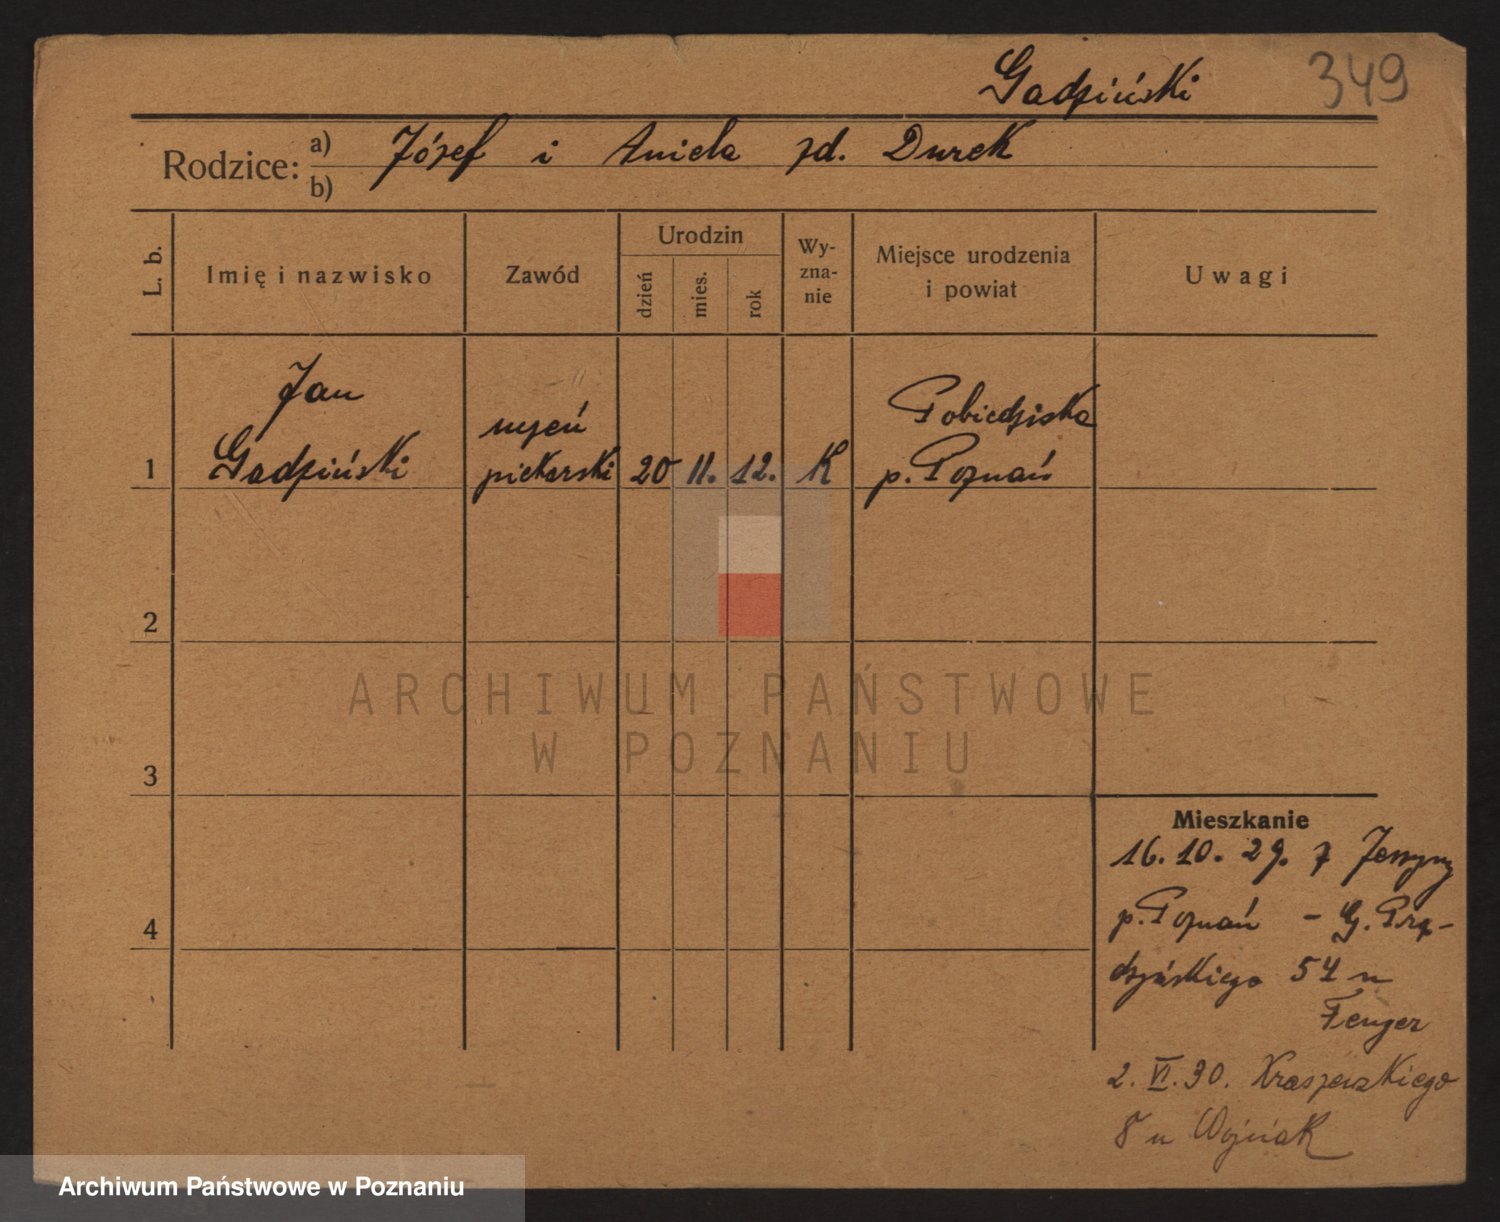 Gadziński 349
Rodzice: a) Józef i Aniela zd. Durek
b)
L. b. Imię i nazwisko Zawód Urodzin dzień mies. rok Wyzna-nie Miejsce urodzenia i powiat Uwagi
Jan
Gadziński
uczeń
piekarski
1 20 11. 12. K
Pobiedziska
p. Poznań
2
3
4
ARCHIWUM PAŃSTWOWE
W POZNANIU
Mieszkanie
16. 10. 29. z
p. Poznań - G. Prą-
dzyńskiego 54 u
2. VI. 30. Kraszewskiego
8 u Wojciak
Archiwum Państwowe w Poznaniu